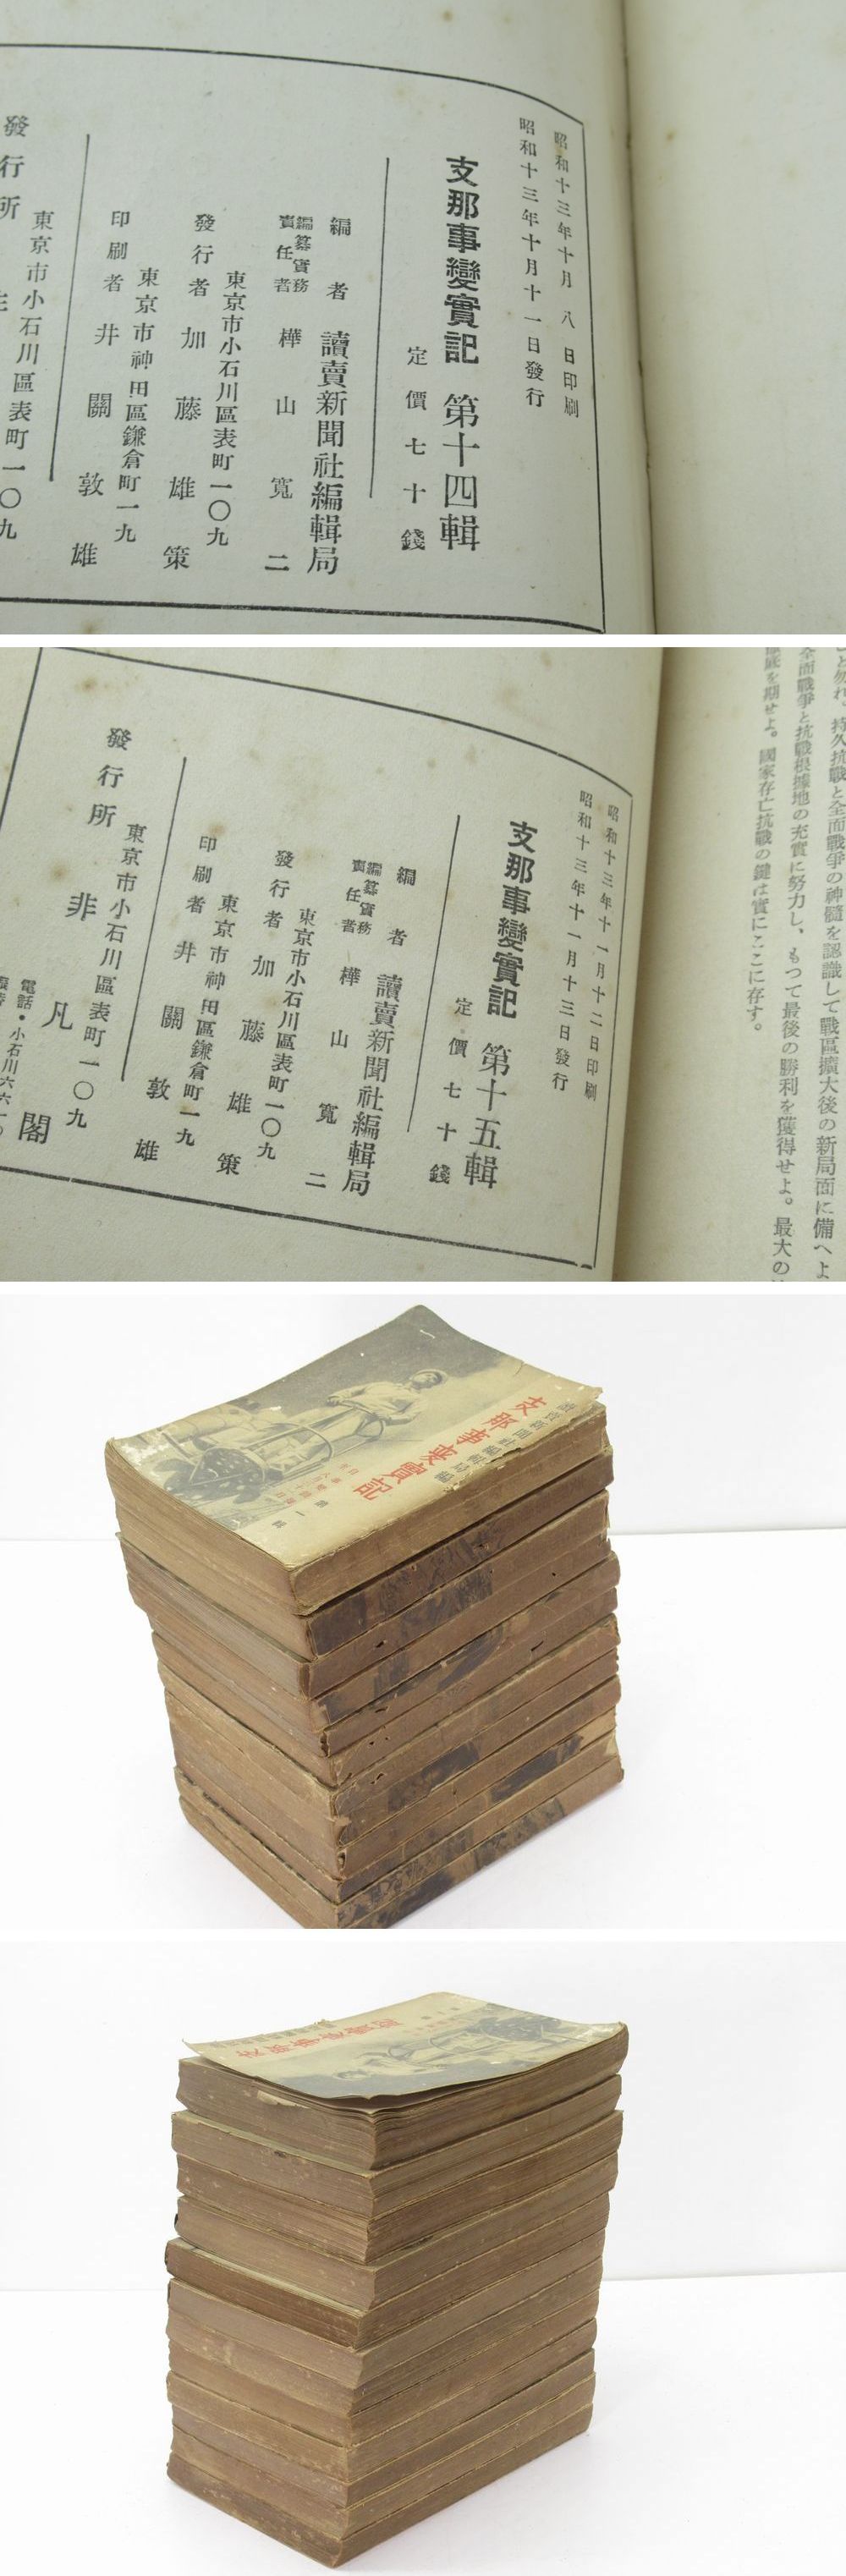 昭和十三年十月八日印刷
昭和十三年十月十一日發行
支那事變實記 第十四輯
定價七十錢
編者 讀賣新聞社編輯局
編纂實務責任者 樺山寬二
東京市小石川區表町一〇九
發行者 加藤雄策
東京市神田區鎌倉町一九
印刷者 井關敦雄
東京市小石川區表町一〇九
發行所
と勿れ、持久抗戰と全面戰爭の神髓を認識して戰區擴大後の新局面に備へよ
全面戰爭と抗戰根據地の充實に努力し、もつて最後の勝利を獲得せよ。最大の
底を期せよ。國家存亡抗戰の鍵は實にここに存す。
昭和十三年十一月十二日印刷
昭和十三年十一月十三日發行
支那事變實記 第十五輯
定價七十錢
編者 讀賣新聞社編輯局
編纂實務責任者 樺山寬二
東京市小石川區表町一〇九
發行者 加藤雄策
東京市神田區鎌倉町一九
印刷者 井關敦雄
東京市小石川區表町一〇九
發行所 非凡閣
電話・小石川六六一〇
讀賣新聞社編輯局編
支那事變實記
第一輯